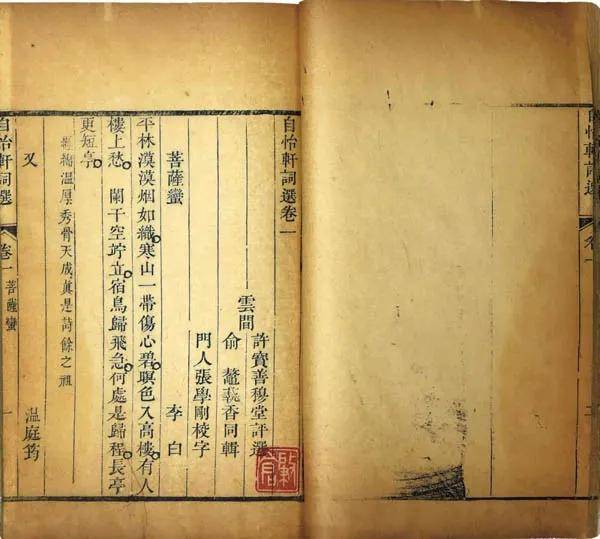 自怡軒詞選 卷一
自怡軒詞選卷一
雲間
許寶善穆堂評選
俞鼇 香同輯
門人張學剛校字
菩薩蠻 李白
平林漠漠烟如織。寒山一帶傷心碧。暝色入高樓。有人
樓上愁。 闌干空竚立。宿鳥歸飛急。何處是歸程。長亭
更短亭。
温厚秀骨天成眞是詩餘之祖
又 温庭筠
自怡軒詞選 卷一 菩薩蠻 一